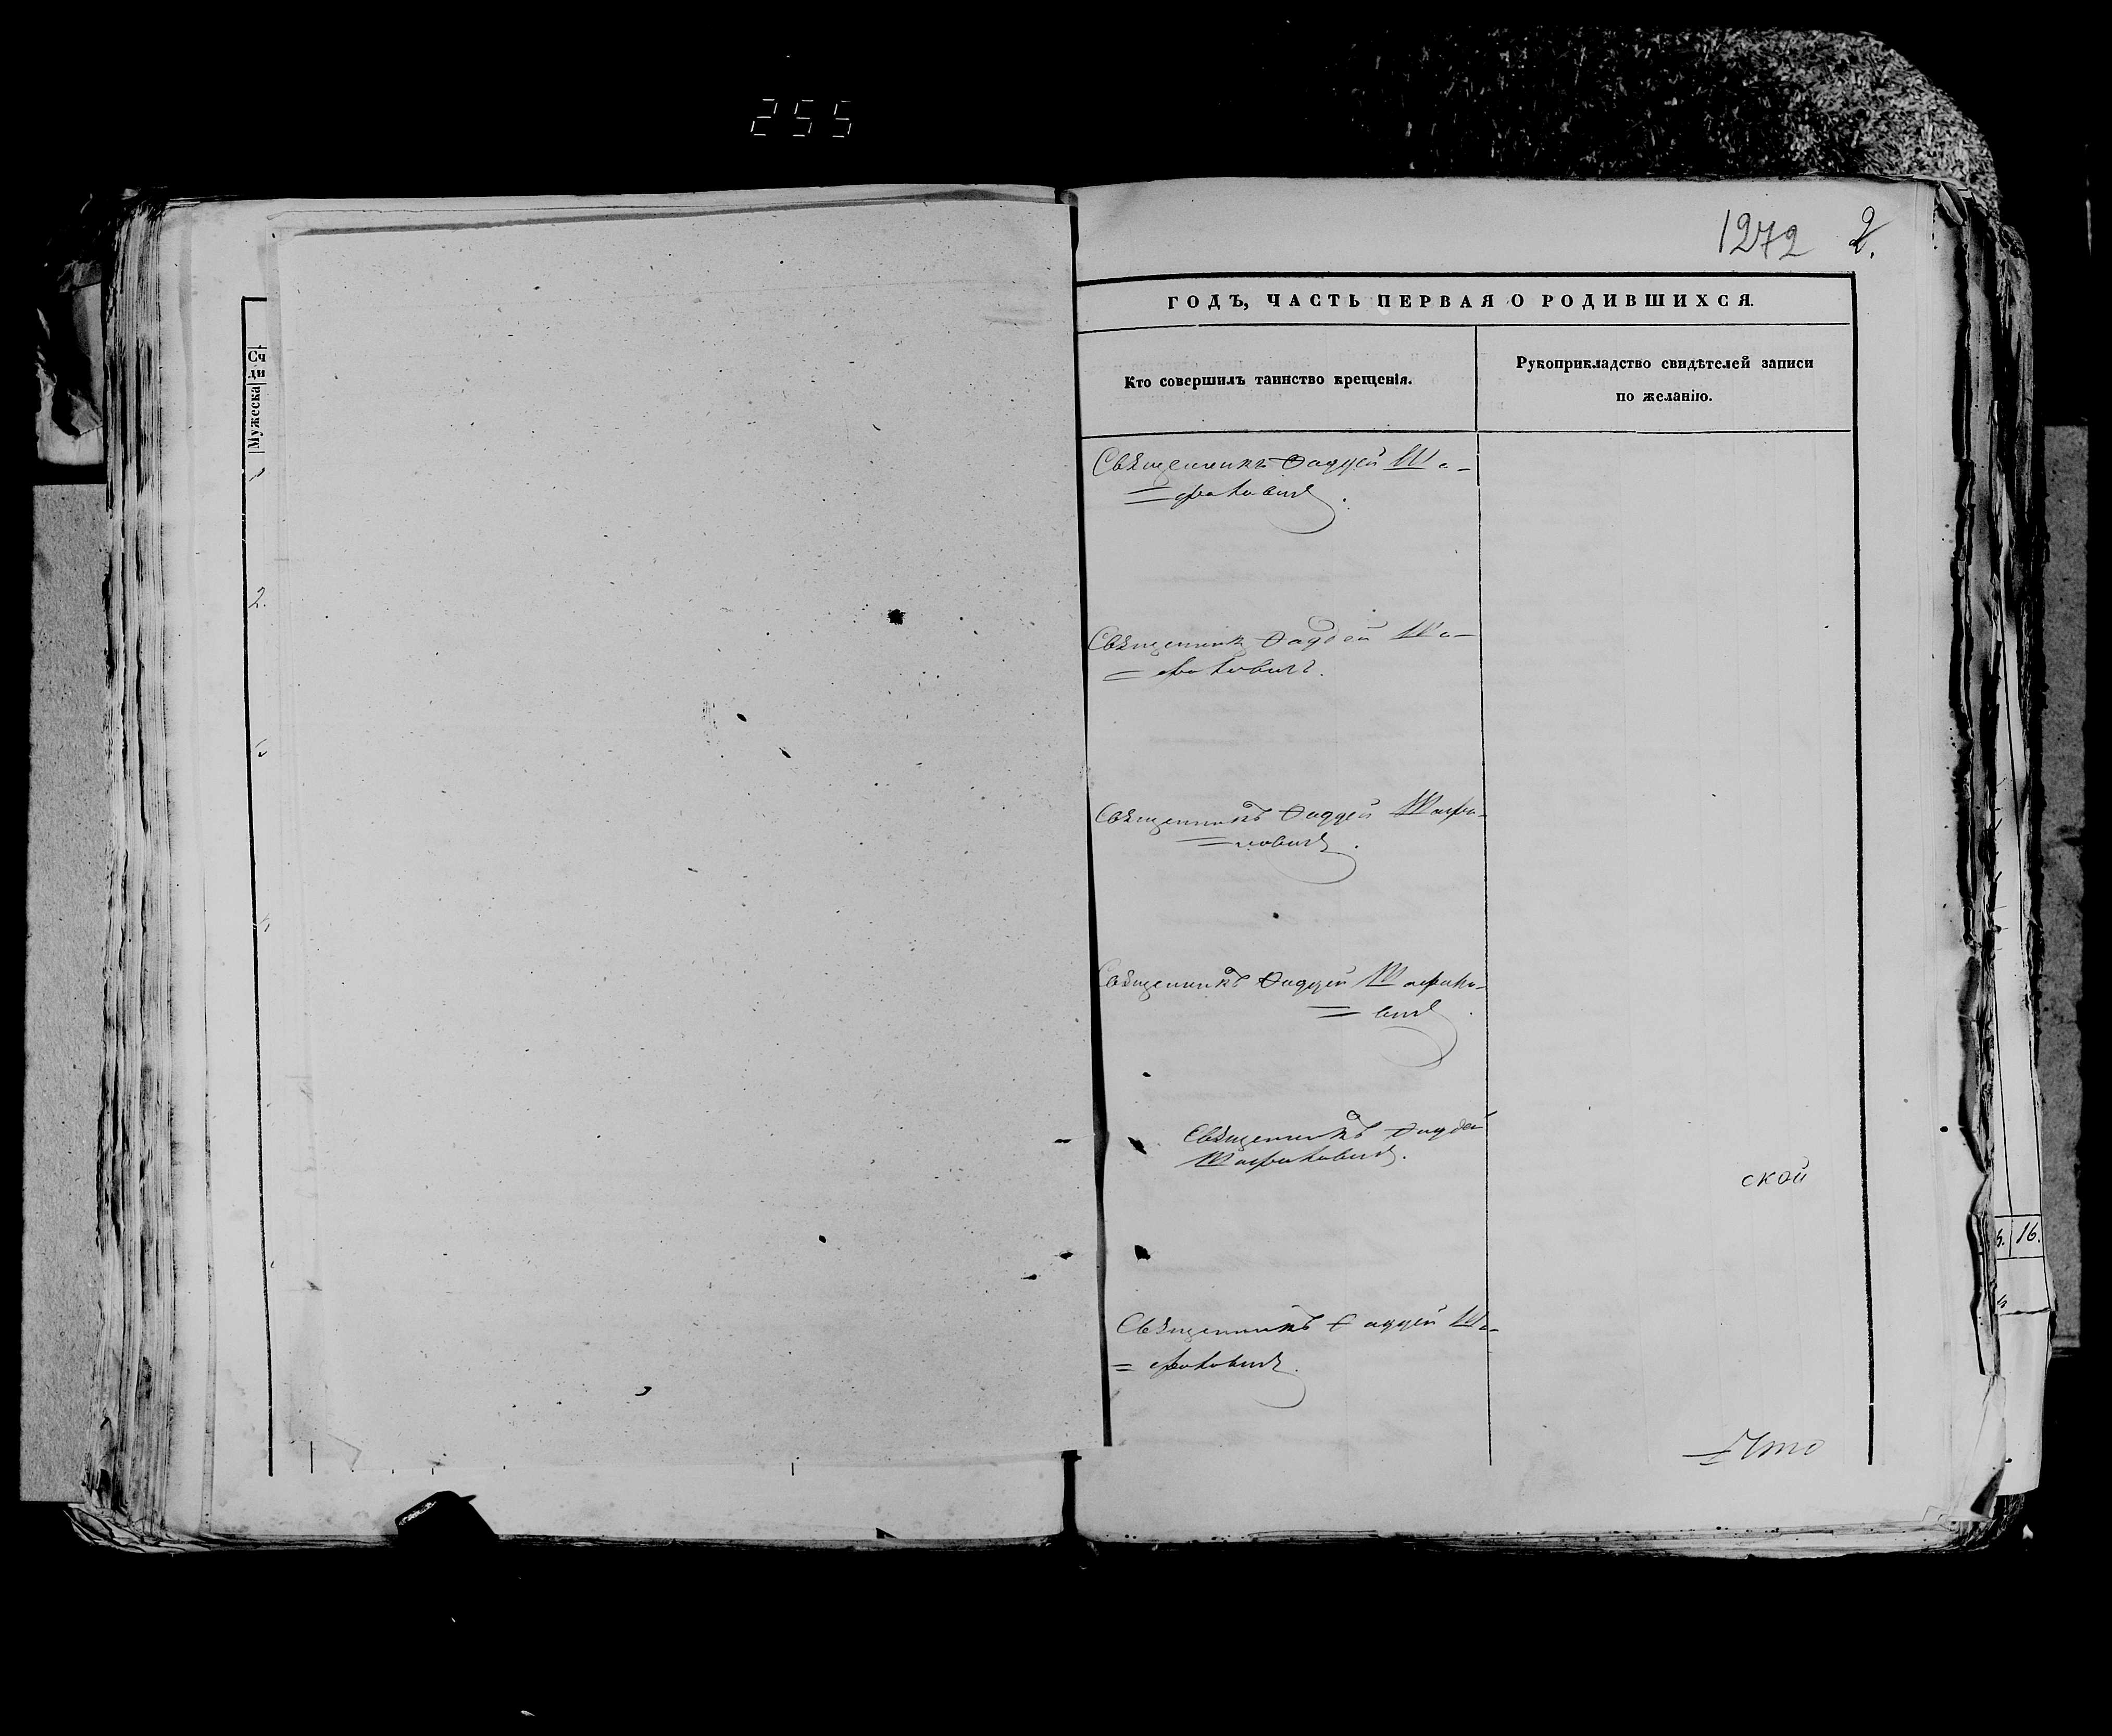 255
1272 2.
ГОДЪ, ЧАСТЬ ПЕРВАЯ О РОДИВШИХСЯ.
Сч
ди
Мужеска
Кто совершилъ таинство крещенія.
Рукоприкладство свидѣтелей записи
по желанію.
Священникъ Ѳаддей Ша-
=франовичъ.
2.
Священникъ Ѳаддей Ша-
=франовичъ.
Священникъ Ѳаддей Шафра-
=новичъ.
Священникъ Ѳаддей Шафрано-
=вичъ.
Священникъ Ѳаддей
Шафрановичъ.
ской
16.
Священникъ Ѳаддей Ша-
=франовичъ.
Что